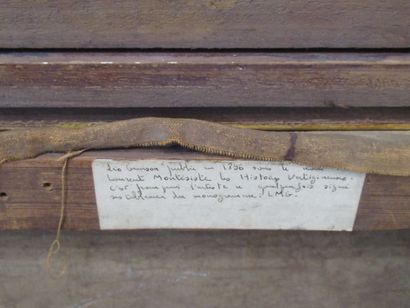 Léo Gausson publia en 1896 sous le nom
Laurent Montésiste les Histoires Vertigineuses.
C'est pourquoi l'artiste a quelquefois signé
ses tableaux du monogramme: LMG.